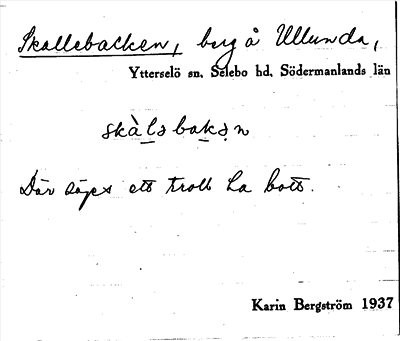 Skallebacken, berg å Ullunda,
Ytterselö sn. Selebo hd. Södermanlands län
skàlsbakən
Där säges ett troll ha bott.
Karin Bergström 1937